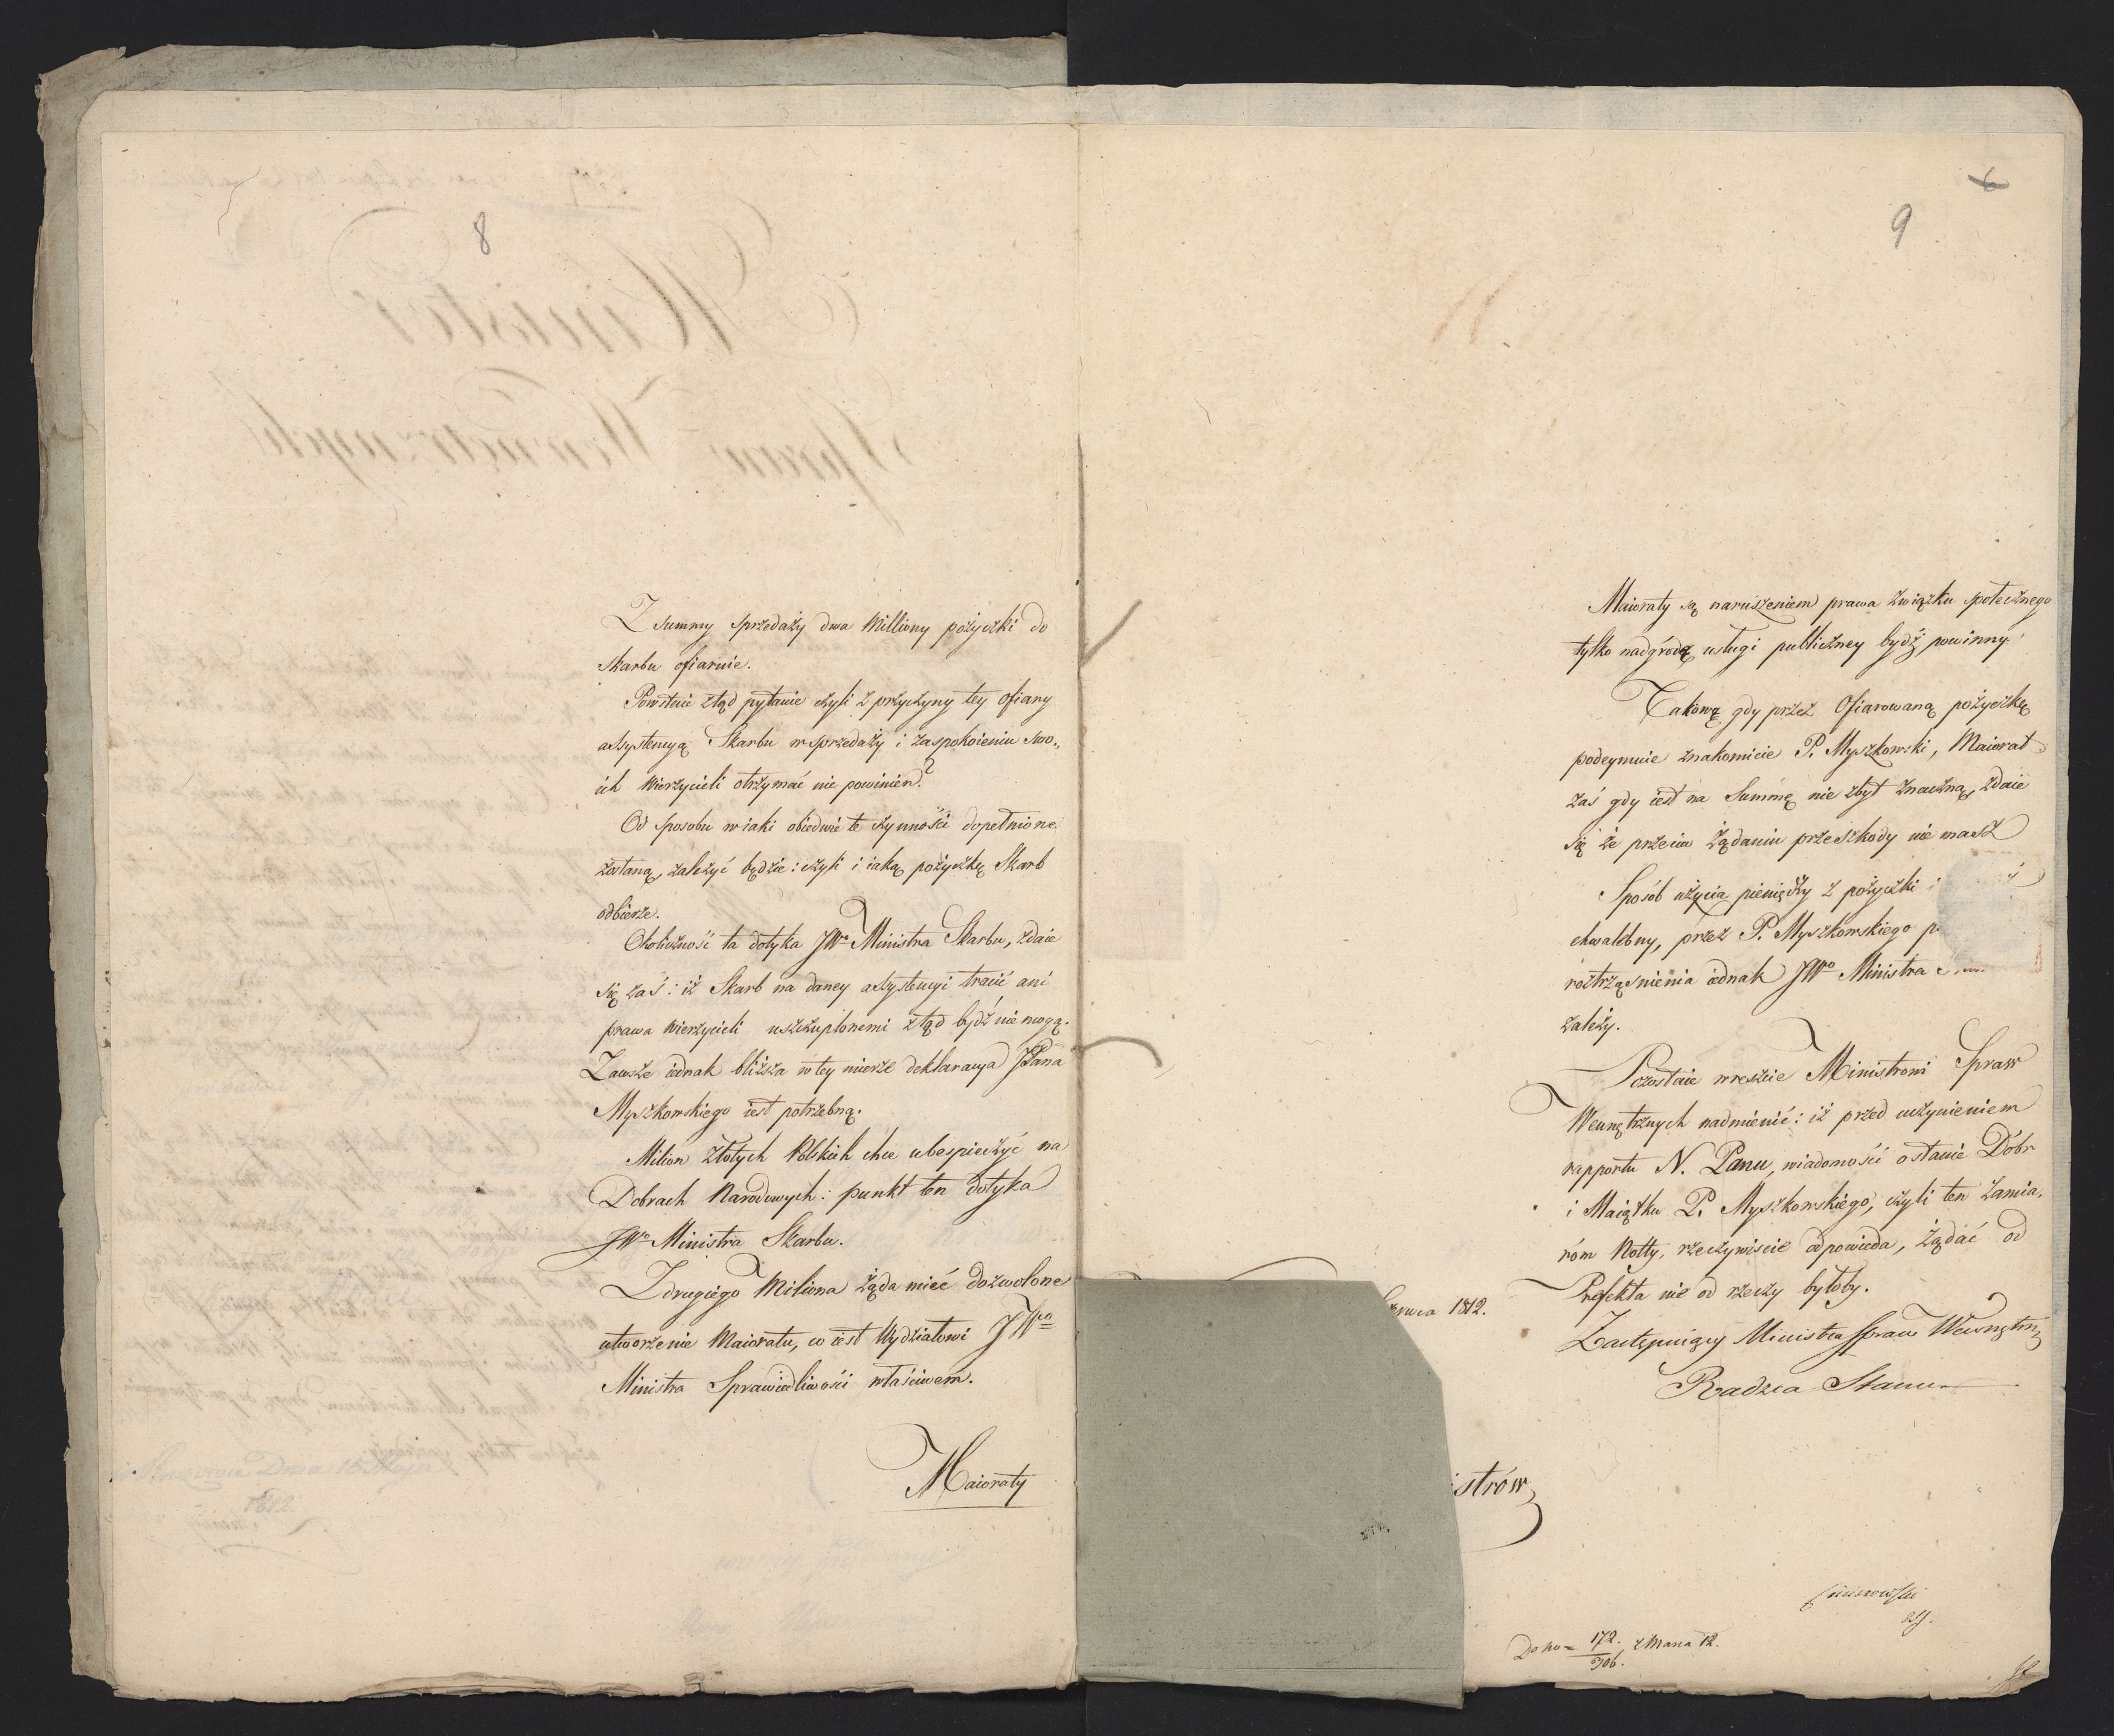 8
Z Summy Sprzedaży dwa Milliony pożyczki do
Skarbu ofiaruie.
Powstaie ztąd pytanie czyli z przyczyny tey Ofiary
assystencyą Skarbu w sprzedaży i zaspokoieniu swo„
ich Wierzycieli otrzymać nie powinien?
Od Sposobu w iaki obiedwie te czynności dopełnione
zostaną, zależyć będzie: czyli i iaką pożyczkę Skarb
odbierze.
Okoliczność ta dotyka JWo Ministra Skarbu, zdaie
się zaś: iż Skarb na daney assystencyi tracić ani
prawa Wierzycieli uszczuplonemi ztąd bydź nie mogą.
Zawsze iednak bliższa w tey mierze deklaracya JPana
Myszkowskiego iest potrzebną.
Milion złotych Polskich chce ubespieczyć na
Dobrach Narodowych: punkt ten dotyka
JWo Ministra Skarbu.
Z drugiego Miliona żąda mieć dozwolone
utworzenie Maioratu, co iest Wydziałowi JWo
Ministra Sprawiedliwości właściwem.
Maioraty
6
9
Maioraty są naruszeniem prawa związku społecznego
tylko nadgrodą usługi publiczney bydź powinny.
Takową gdy przez Ofiarowaną pożyczkę
podeymuie znakomicie P. Myszkowski, Maiorat
zaś gdy iest na Summę nie zbyt znaczną, zdaie
się że przeciw żądaniu przeszkody nie masz
Sposób użycia pieniędzy z pożyczki
chwalebny, przez P. Myszkowskiego p
roztrząśnienia iednak JWo Ministra
zależy.
Pozostaie wreszcie Ministrowi Spraw
Wewnętrznych nadmienić: iż przed uczynieniem
rapportu N. Panu, wiadomości o stanie Dóbr
i Maiątku P. Myszkowskiego, czyli ten zamia„
róm Notty, rzeczywiście odpowieda, żądać od
Prefekta nie od rzeczy byłoby.
Zastępuiący Ministra Spraw Wewnętrz
Radzca Stanu
zerwca 1812.
istrów
Do No = 172./306. z Marca 12.